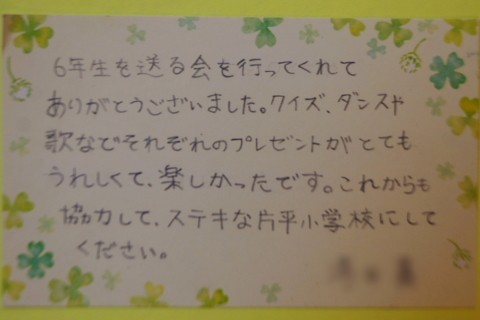 6年生を送る会を行ってくれて
ありがとうございました。クイズ、ダンスや
歌などそれぞれのプレゼントがとても
うれしくて、楽しかったです。これからも
協力して、ステキな片平小学校にして
ください。